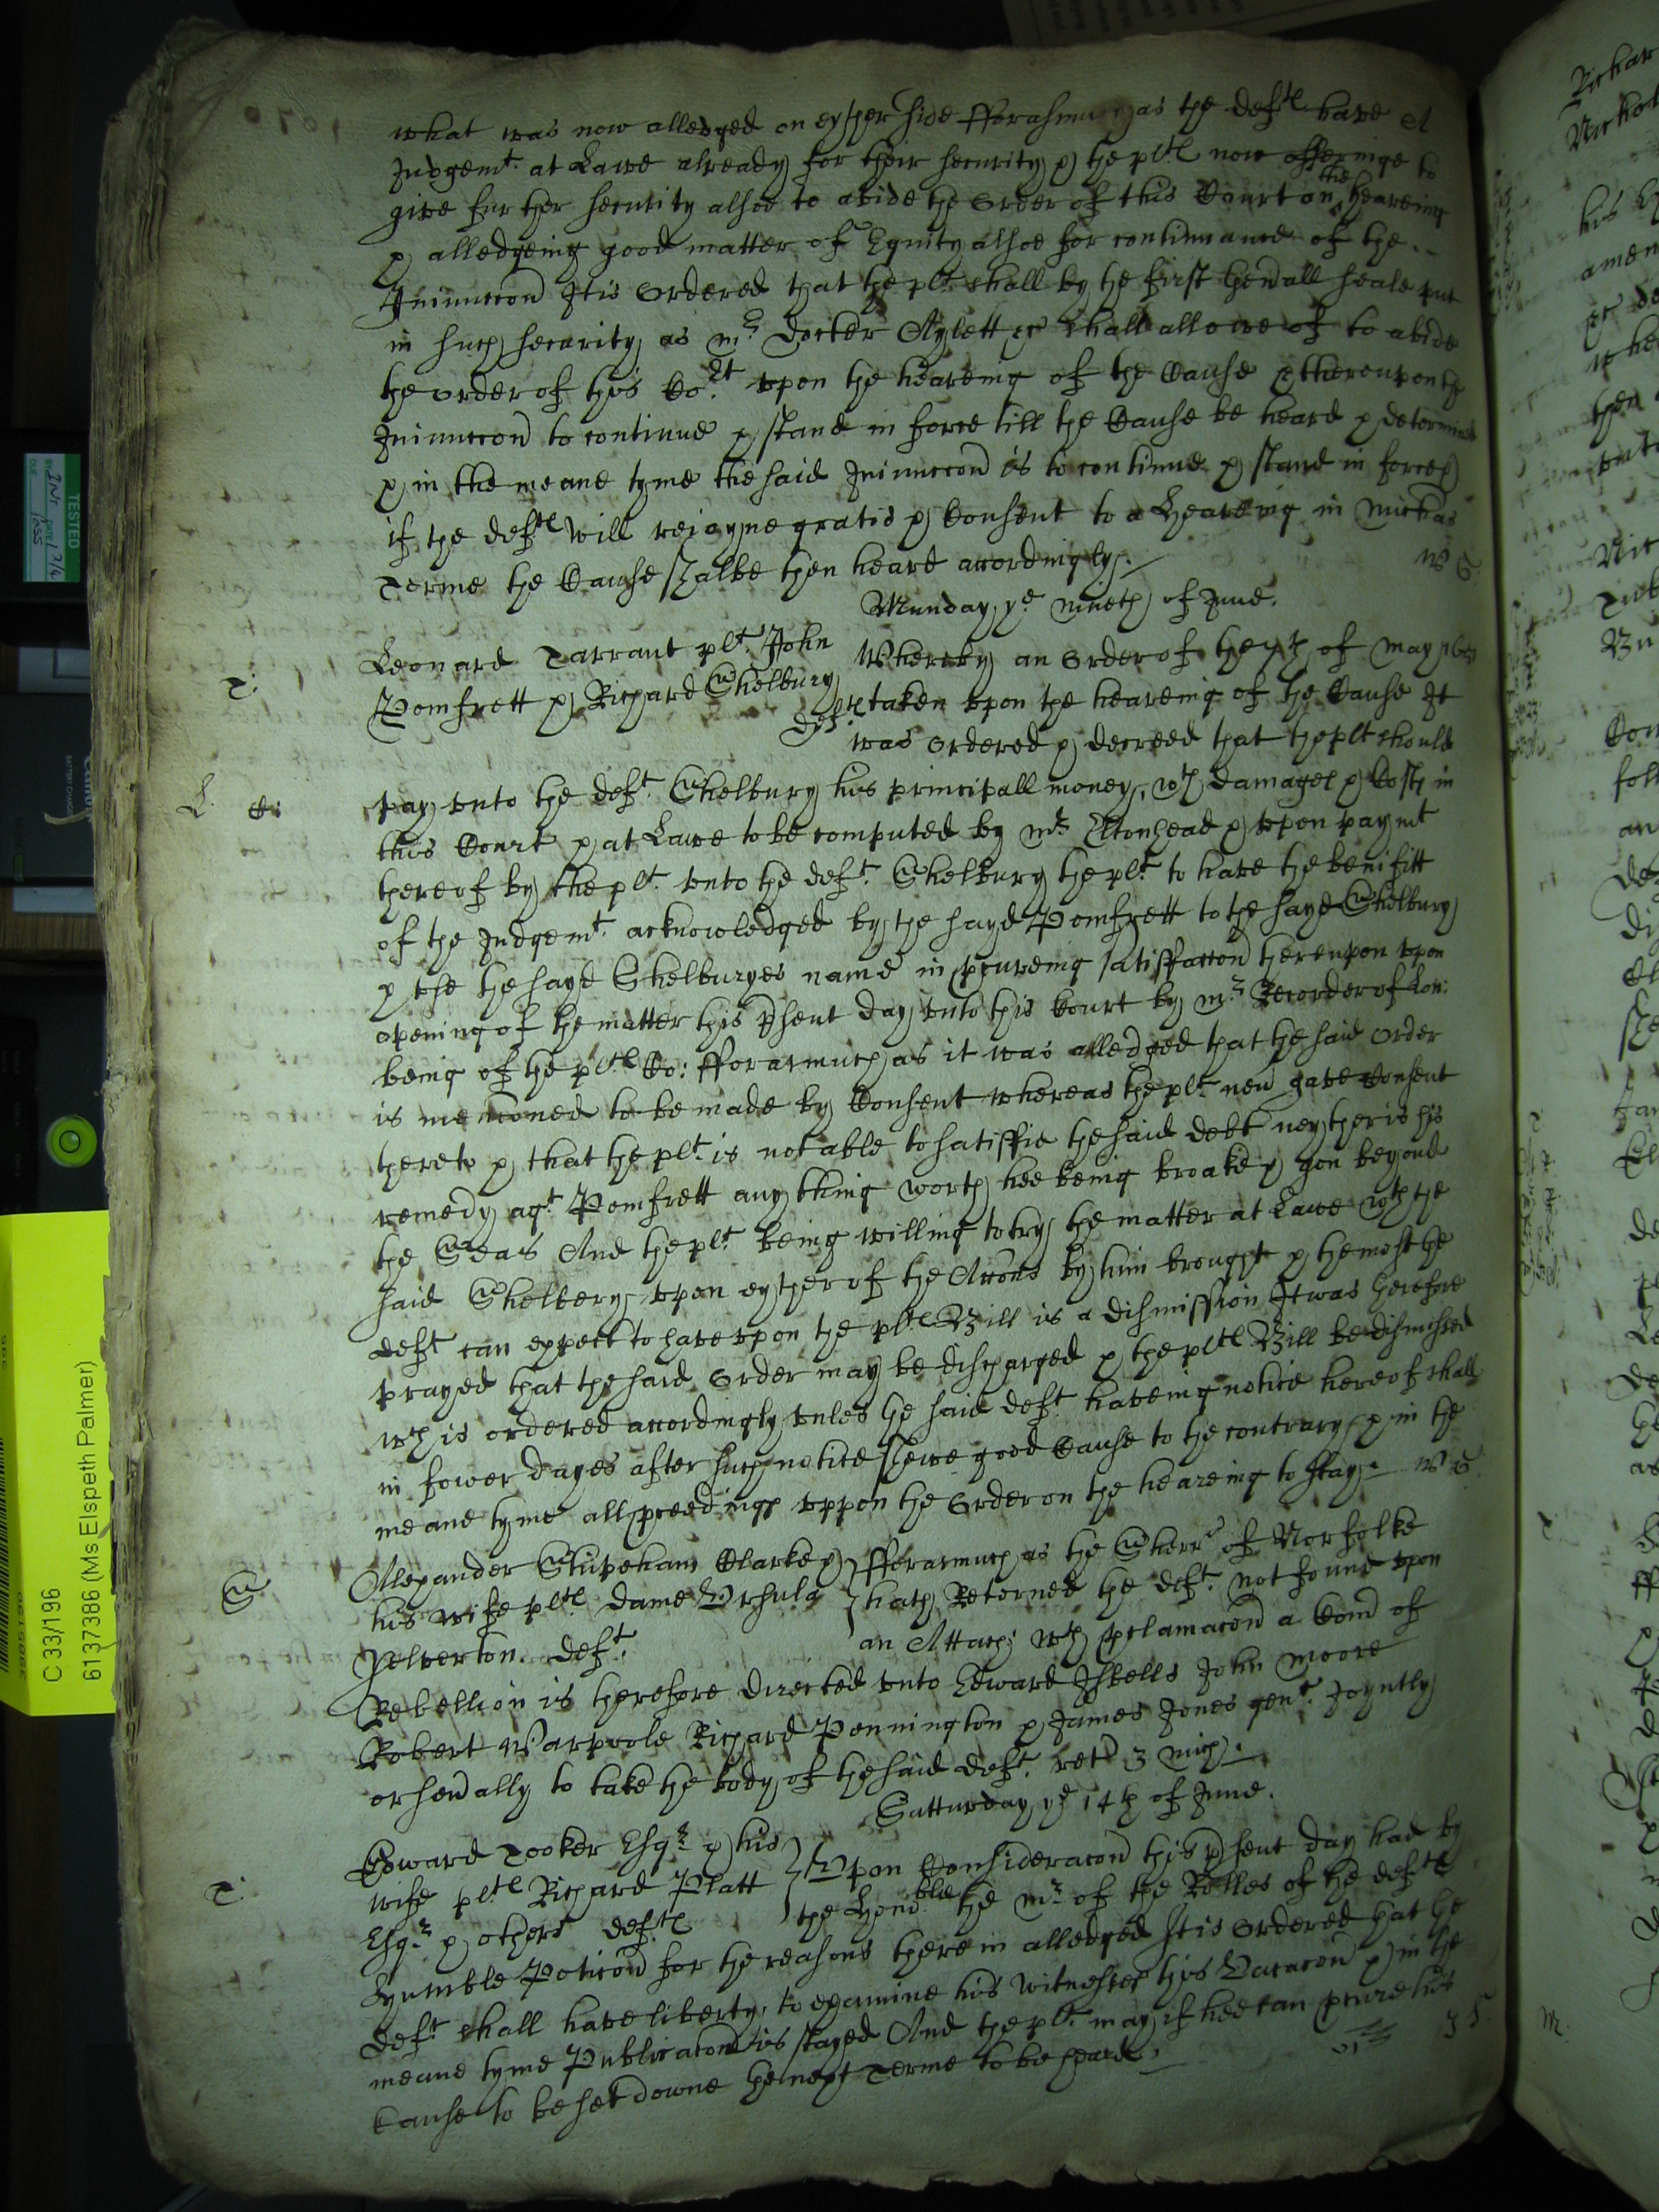 what was now alledged on eyther side fforasmuch as the deftes have a
Judgemt. at Lawe already for their security & the pltes now offeringe to
give further security alsoe to abide the Order of this Court on the heareing
& alledgeing good matter of Equity alsoe for continuance of the
Iniunccon It is Ordered that the plt. shall by the first Generall seale put
in such security as mr. Doctor Aylett &c shall allowe of to abide
the order of this Cort. upon the heareing of the Cause & thereupon the
Iniunccon to continue & stand in force till the Cause be heard & determined
& in the meane tyme the said Iniunccon is to continue & stand in force &
if the deftes will reioyne gratis & Consent to a Heareing in Michas
Terme the Cause shalbe then heard accordingly.
Munday ye nineth of June.
T: Leonard Tarrant plt. John
Pomfrett & Richard Shelbury
deftes
Whereby an Order of the of May
taken upon the heareing of the Cause It
was Ordered & decreed that the plt should
L. C: pay unto the deft. Shelbury his principall money, wth damages & Costs in
this Court & at Lawe to be computed by mr. Eltonhead & upon paymt
thereof by the plt. unto the deft. Shelbury the plt. to have the benifitt
of the Judgemt. acknowledged by the sayd Pomfrett to the sayd Shelbury
& use the sayd Shelburyes name in procureing satisfaccon thereupon upon
opening of the matter this present day unto this Court by mr. Recorder of Lon:
being of the pltes Co: fforasmuch as it was alledged that the said Order
is menconed to be made by Consent whereas the plt. nev gave Consent
thereto & that the plt. is not able to satisfie the said debt neyther is his
remedy agt. Pomfrett any thing worth hee being broake & gon beyond
the Seas And the plt. being willing to try the matter at Lawe wth the
said Shelbery upon eyther of the Accons by him brought & the most the
deft can expect to have upon the pltes Bill is a dismission It was therefore
prayed that the said Order may be discharged & the pltes Bill be dismissed
wch is ordered accordingly unles the said deft. haveing notice hereof shall
in fower dayes after such notice shewe good Cause to the contrary, & in the
meane tyme all proceedings uppon the Order on the heareing to stay.
S Allexander Stupeham Clarke &
his wife pltes. Dame Ursula
Yelverton. deft.
fforasmuch as the Sherr. of Norfolke
hath Retorned the deft. not found upon
an Attach: wth proclamacon a Comi of
Rebellion is therefore directed unto Edward Isbells John Moore
Robert Warpoole Richard Pennington & James Jones gent. Joyntly
or severally to take the body of the said deft. ret 3 mich.
Satturday ye 14th of June.
T: Edward Tooker Esqr. & his
wife pltes Richard Platt
Esqr. & others deftes
Upon Consideracon this present day had by
the Honoble. the mr. of the Rolles of the deftes
humble Peticon for the reasons therein alledged It is Ordered that the
deft. shall have liberty, to examine his witnesses this Vacacon & in the
meane tyme Publicacon is stayed And the plt. may if hee can procure his
Cause to be set downe the next Terme to be heard.
TESTED
C 33/196
6137386 (Ms Elspeth Palmer)